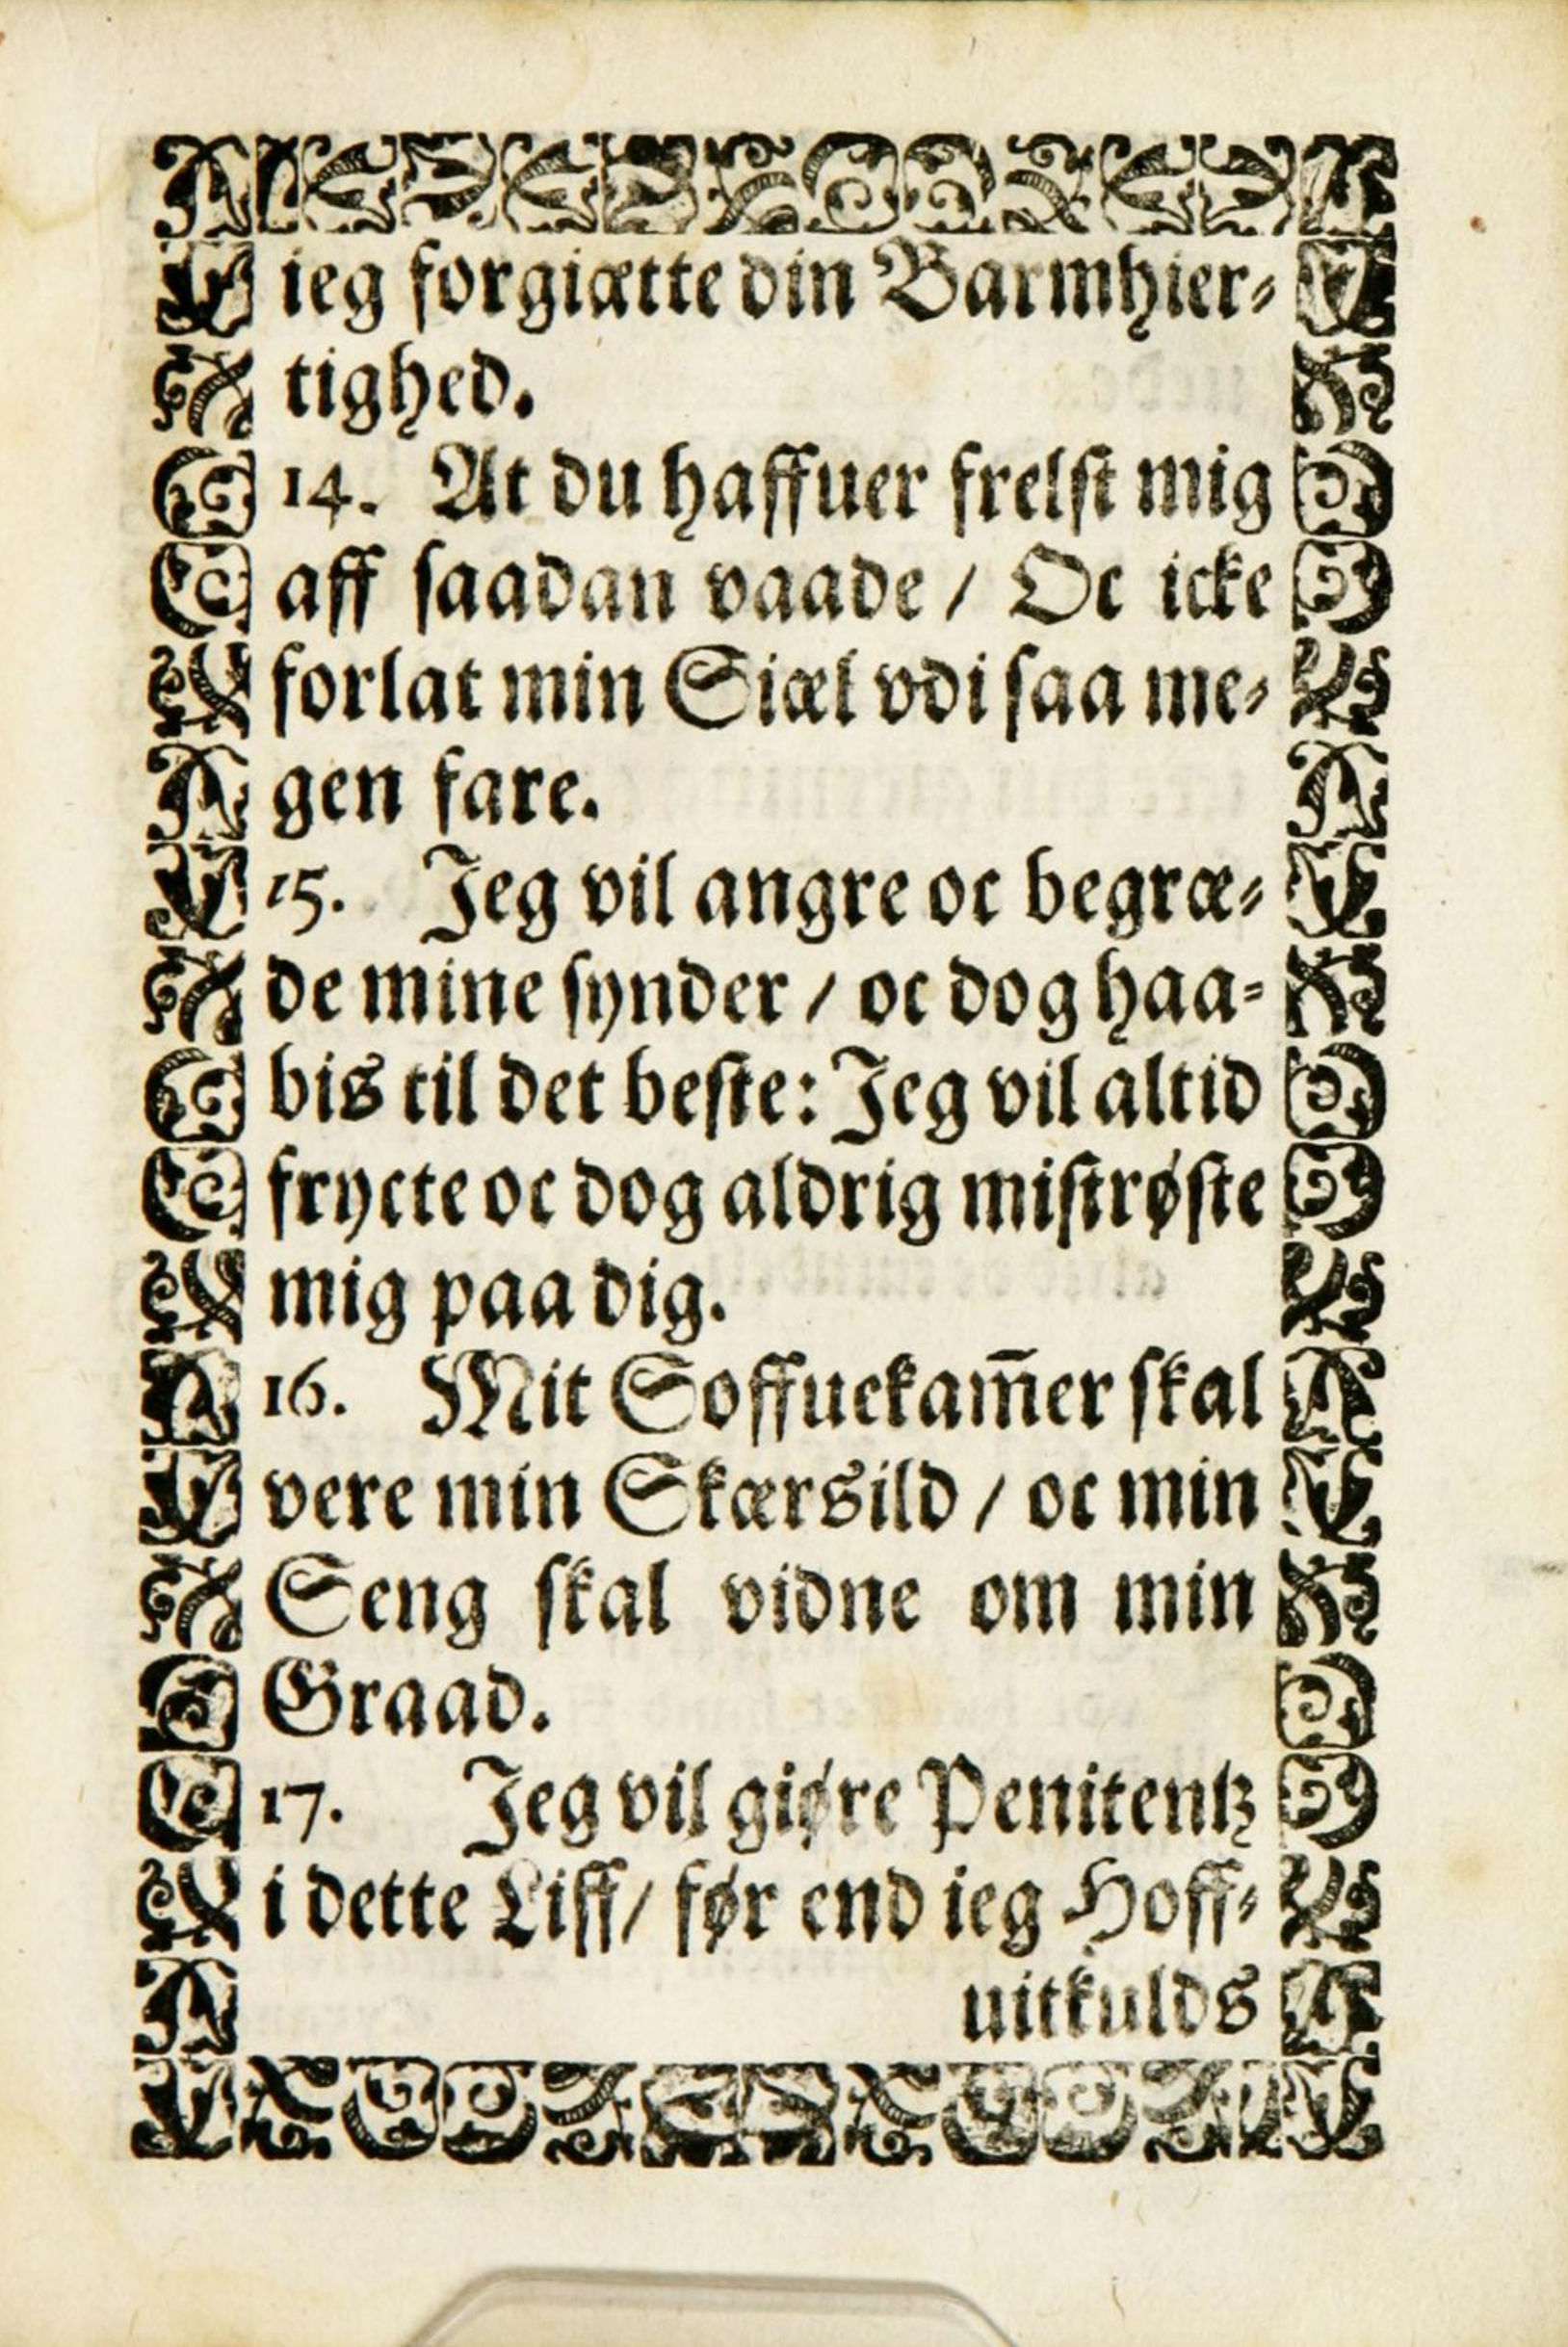 ieg forgiætte din Barmhier⸗
tighed.
14. At du haffuer frelst mig
aff saadan vaade / Oc icke
forlat min Siæl vdi saa me⸗
gen fare.
15. Jeg vil angre oc begræ⸗
de mine synder / oc dog haa⸗
bis til det beste: Jeg vil altid
frycte oc dog aldrig mistrøste
mig paa dig.
16. Mit Soffuekam̄er skal
vere min Skærsild / oc min
Seng skal vidne om min
Graad.
17. Jeg vil giøre Penitentz
i dette Liff / før end ieg Hoff⸗
uitkulds